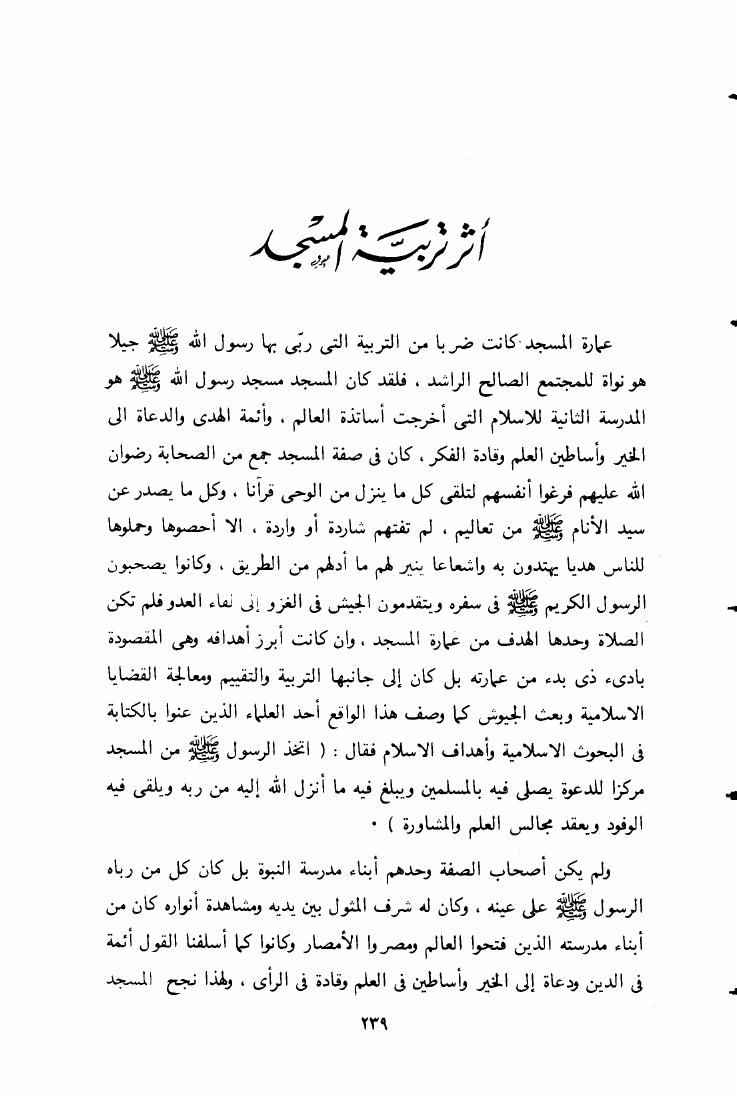 أثر تربية المسجد
عمارة المسجد كانت ضربا من التربية التى ربّى بها رسول الله ﷺ جيلا
هو نواة للمجتمع الصالح الراشد ، فلقد كان المسجد مسجد رسول الله ﷺ هو
المدرسة الثانية للاسلام التى أخرجت أساتذة العالم ، وأئمة الهدى والدعاة الى
الخير وأساطين العلم وقادة الفكر ، كان فى صفة المسجد جمع من الصحابة رضوان
الله عليهم فرغوا أنفسهم لتلقى كل ما ينزل من الوحى قرآنا ، وكل ما يصدر عن
سيد الأنام ﷺ من تعاليم ، لم تفتهم شاردة أو واردة ، الا أحصوها وحملوها
للناس هديا يهتدون به واشعاعا ينير لهم ما أدلهم من الطريق ، وكانوا يصحبون
الرسول الكريم ﷺ فى سفره ويتقدمون الجيش فى الغزو إلى لقاء العدو فلم تكن
الصلاة وحدها الهدف من عمارة المسجد ، وان كانت أبرز أهدافه وهى المقصودة
بادىء ذى بدء من عمارته بل كان إلى جانبها التربية والتقييم ومعالجة القضايا
الاسلامية وبعث الجيوش كما وصف هذا الواقع أحد العلماء الذين عنوا بالكتابة
فى البحوث الاسلامية وأهداف الاسلام فقال : ( اتخذ الرسول ﷺ من المسجد
مركزا للدعوة يصلى فيه بالمسلمين ويبلغ فيه ما أنزل الله إليه من ربه ويلقى فيه
الوفود ويعقد مجالس العلم والمشاورة ) .
ولم يكن أصحاب الصفة وحدهم أبناء مدرسة النبوة بل كان كل من رباه
الرسول ﷺ على عينه ، وكان له شرف المثول بين يديه ومشاهدة أنواره كان من
أبناء مدرسته الذين فتحوا العالم ومصروا الأمصار وكانوا كما أسلفنا القول أئمة
فى الدين ودعاة إلى الخير وأساطين فى العلم وقادة فى الرأى ، ولهذا نجح المسجد
٢٣٩